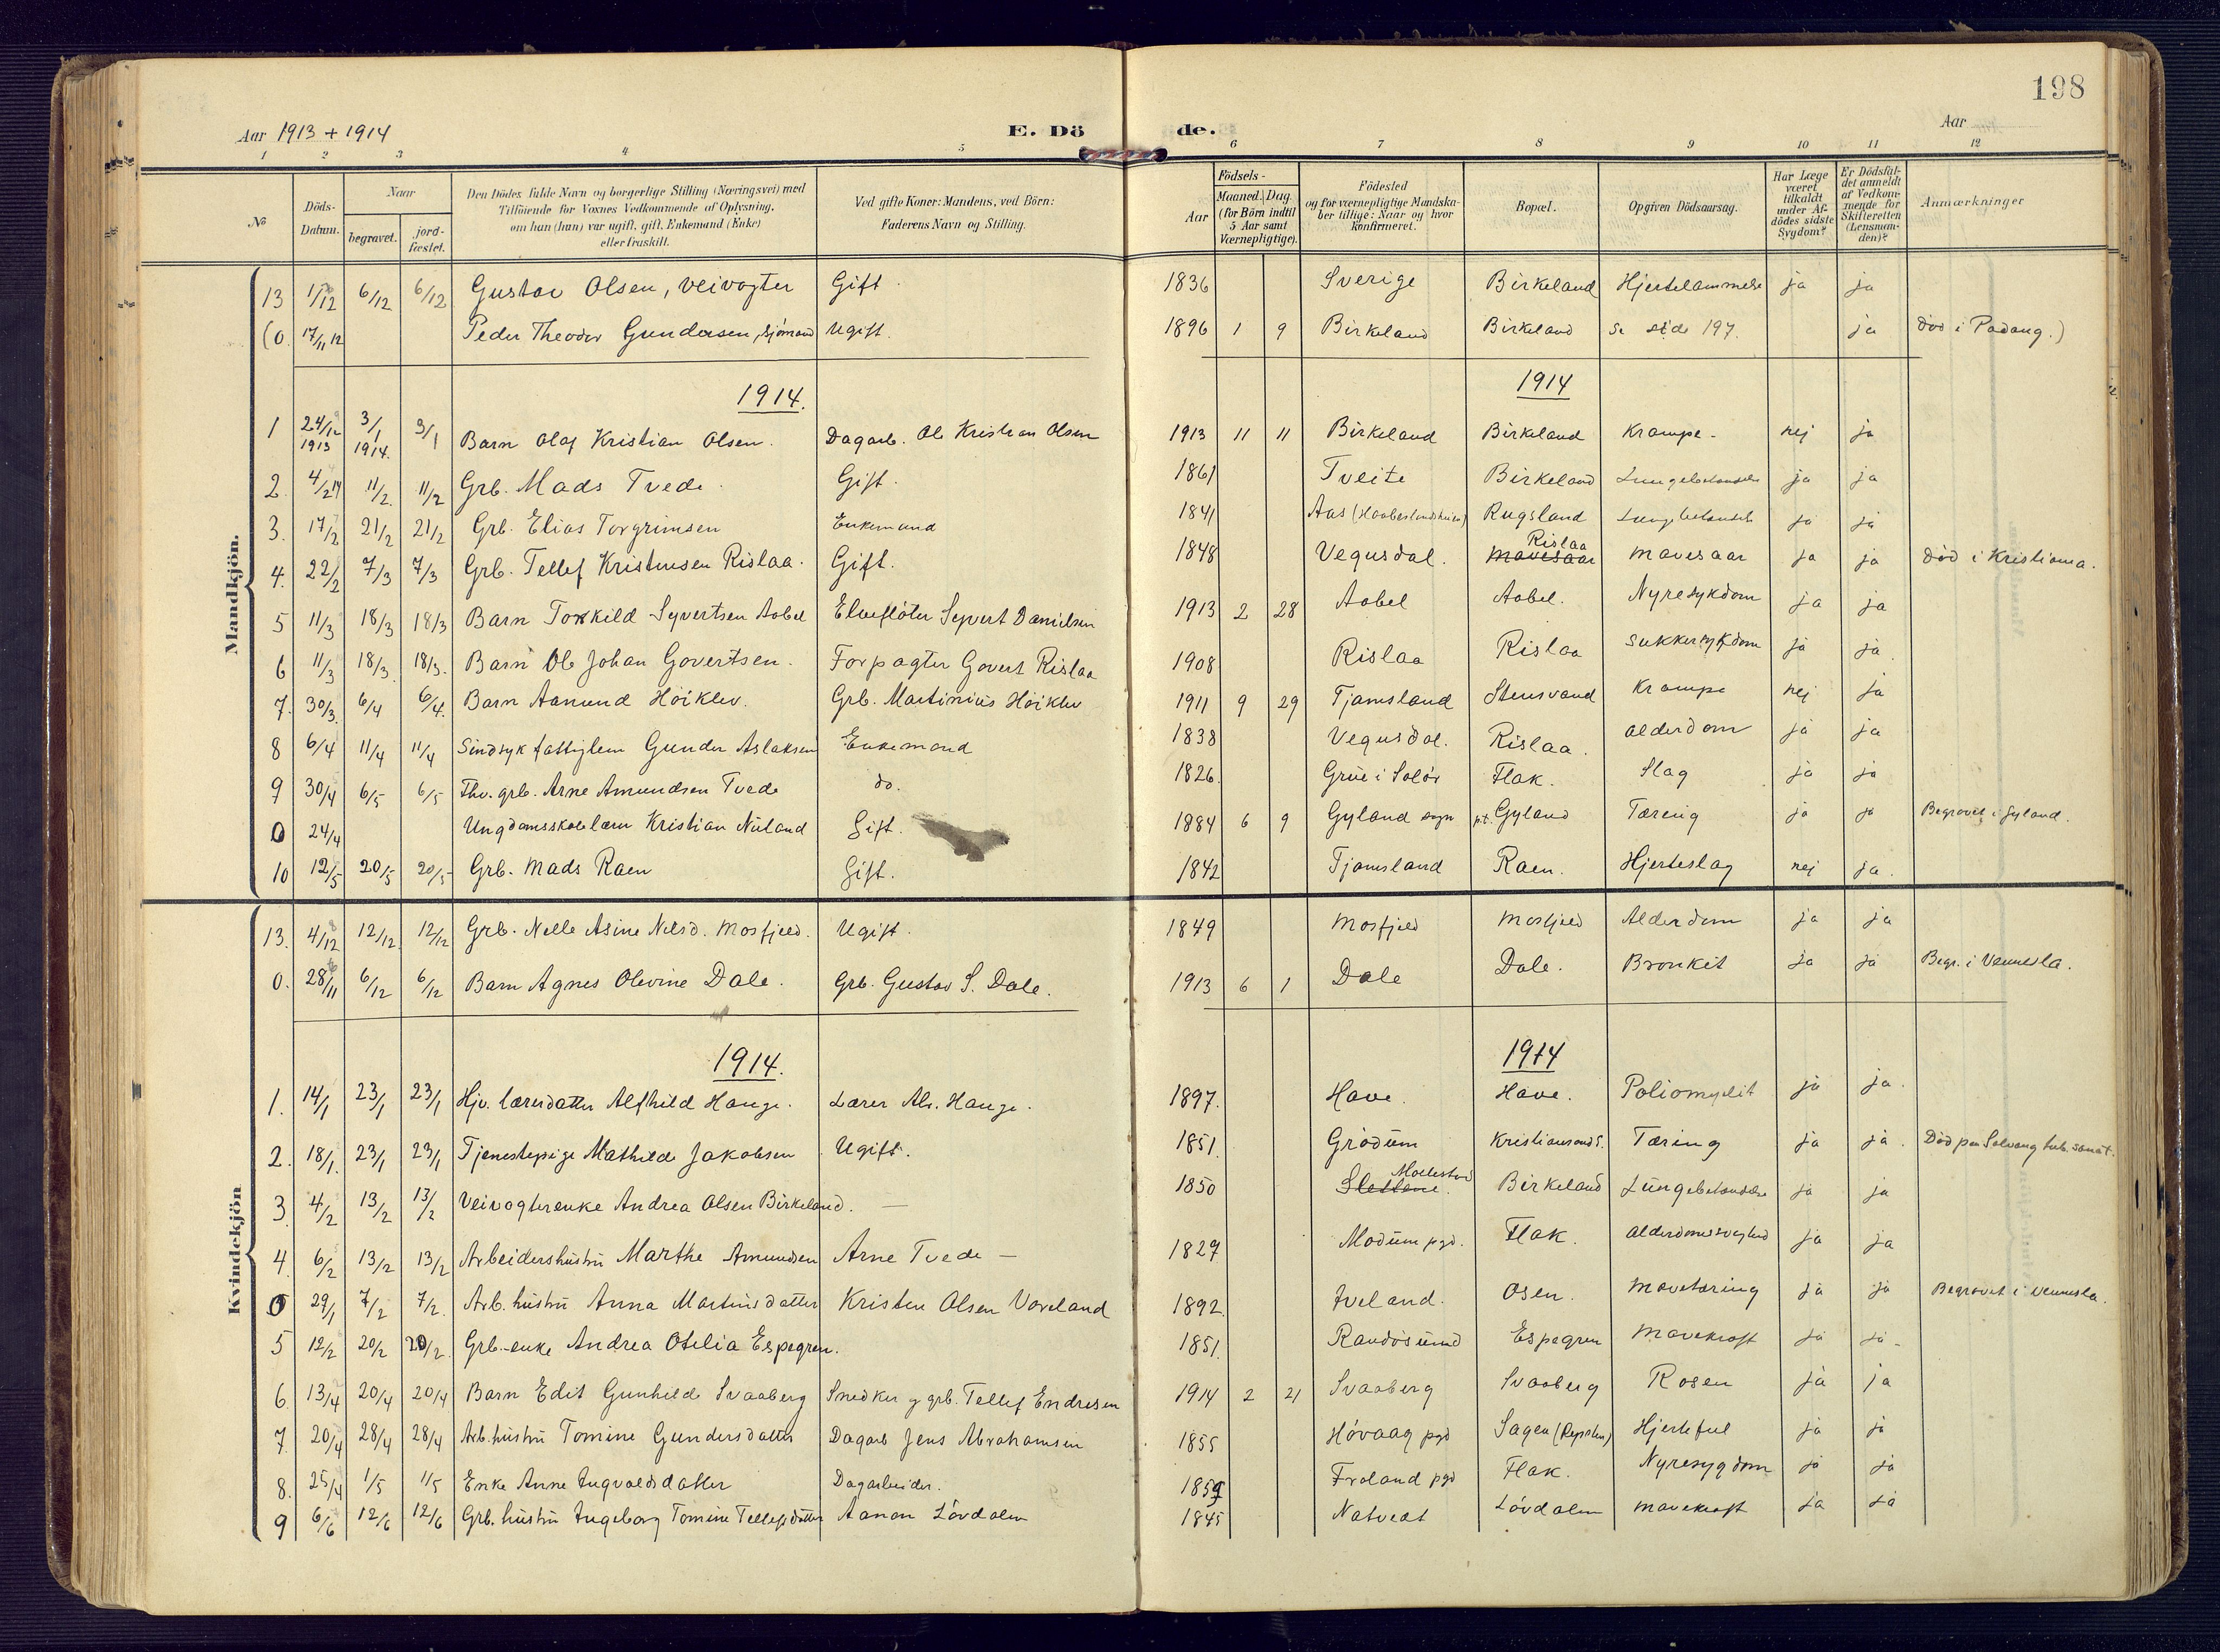 198
Aar 1913 + 1914
E. Dö
de.
Aar
1 2 3 4 5 6 7 8 9 10 11 12
№
Döds-Datum.
Naar
begravet.
jord-fæstet.
Den Dödes fulde Navn og borgerlige Stilling (Næringsvei) med
Tilföiende for Voxnes Vedkommende af Oplysning,
om han (hun) var ugift, gift, Enkemand (Enke)
eller fraskilt.
Ved gifte Koner: Mandens, ved Börn:
Faderens Navn og Stilling.
Födsels-
Aar
Maaned. Dag
(for Börn indtil
5 Aar samt
Værnepligtige).
Födested
og for værnepligtige Mandska-
ber tillige: Naar og hvor
konfirmeret.
Bopæl.
Opgiven Dödsaarsag.
Har Læge
været
tilkaldt
under Af-
dödes sidste
Sygdom?
Er Dödsfal-
det anmeldt
af Vedkom-
mende for
Skifteretten
(Lensman-
den)?
Anmærkninger
Mandkjön.
13 1/12 6/12 6/12 Gustav Olsen, veivogter Gift. 1836 Sverige Birkeland Hjertelammelse ja ja
(0. 17/11 12 Peder Theodor Gundersen, sjömand Ugift. 1896 1 9 Birkeland Birkeland Se side 197. ja död i Padang.)
1914. 1914
1 24/12 1913 3/1 1914. 3/1 Barn Olaf Kristian Olsen. Dagarb. Ole Kristian Olsen 1913 11 11 Birkeland Birkeland Krampe. nej ja
2. 4/2 14 11/2. 11/2 Grb. Mads Tvede. Gift. 1861 Tveite Birkeland Lungebetændelse ja ja
3. 17/2 21/2 21/2 Grb. Elias Torgrimsen Enkemand 1841 Aas Rugsland Lungebetændelse ja ja
4. 22/2 7/3 7/3 Grb. Tellef Kristensen Rislaa. Gift. 1848 Vegusdal. Mavesaar Rislaa mavesaar ja ja död i Kristiania.
5 11/3 18/3 18/3 Barn Torkild Syvertsen Aabel Elveflöter Syvert Danielsen 1913 2 28 Aabel Aabel. Nyresykdom ja ja
6 11/3 18/3. 18/3. Barn Ole Johan Govertsen. Forpagter Govert Rislaa 1908 Rislaa Rislaa Sukkersykdom ja ja.
7. 30/3. 6/4 6/4. Barn Aanund Höiklev. Grb. Martinius Höiklev 1911 9 29 Tjamsland Stensvand Krampe nej ja
8 6/4 11/4 11/4 Sindsyk fattiglem Gunder Aslaksen Enkemand 1838 Vegusdal. Rislaa. alderdom ja ja
9 30/4 6/5 6/5 Fhv. grb. Arne Amundsen Tvede do. 1826. Grue i Solör Flak. Slag ja ja
0 24/4 Ungdomsskolelærer Kristian Nuland Gift. 1884 6 9 Gyland sogn p.t. Gyland Tæring ja ja Begravet i Gyland.
10 12/5 20/5 20/5 Grb. Mads Raen Gift. 1842 Tjamsland Raen. Hjerteslag nej ja.
Kvindekjön
13. 4/12 12/12. 12/12 Grb. Nelle Asine Nilsd. Mosfjeld. Ugift. 1849 Mosfjeld Mosfjeld Alderdom ja ja
0. 28/11 6/12 6/12 Barn Agnes Olevine Dale. Grb. Gustav S. Dale. 1913 6 1 Dale Dale. Bronkit ja ja Begr. i Vennesla.
1914. 1914
1. 14/1 23/1 23/1 Hjv. lærerdatter Alfhild Hauge. Lærer Als. Hauge. 1897. Have. Have. Poliomyelit ja ja.
2. 18/1. 23/1 23/1 Tjenestepige Mathilde Jakobsen Ugift. 1851. Grödum Kristiansand S. Tæring ja ja. Död paa Solvang tub. sanat.
3. 4/2 13/2 13/2 Veivogterenke Andrea Olsen Birkeland. — 1850 Slettene. Birkeland Lungebetændelse ja ja
4. 6/2 13/2 13/2 Arbeidershustru Marthe Amundsen Arne Tvede — 1827 Modum pgd. Flak. alderdomssvaghed ja ja
0 29/1 7/2 7/2. Arb. hustru Anna Martinsdatter Kristen Olsen Vaveland 1892. Iveland. Osen. mavetæring ja ja Begravet i Vennesla.
5 12/2 20/2 20/2. Grb.-enke Andrea Otelia Espegren. 1851. Randösund Espegren mavekræft ja ja
6. 13/4 20/4 20/4 Barn Edit Gunhilde Svaaberg Snedker og grb. Tellef Endresen 1914 2 21 Svaaberg Svaaberg Rosen ja ja
7. 20/4 28/4 28/4 Arb. hustru Tomine Gundersdatter Dagarb Jens Abrahamsen 1855 Hövaag pgd Sagen Hjertefeil ja ja
8. 25/4 1/5 1/5 Enke Anne Ingvaldsdatter Dagarbeider. 1859 Froland pgd Flak. Nyresygdom ja ja
9 6/6 12/6 12/6 Grb. hustru Ingeborg Tomine Tellefsdatter Aanon Lövdalen 1845 Natvedt Lövdalen mavekræft ja ja